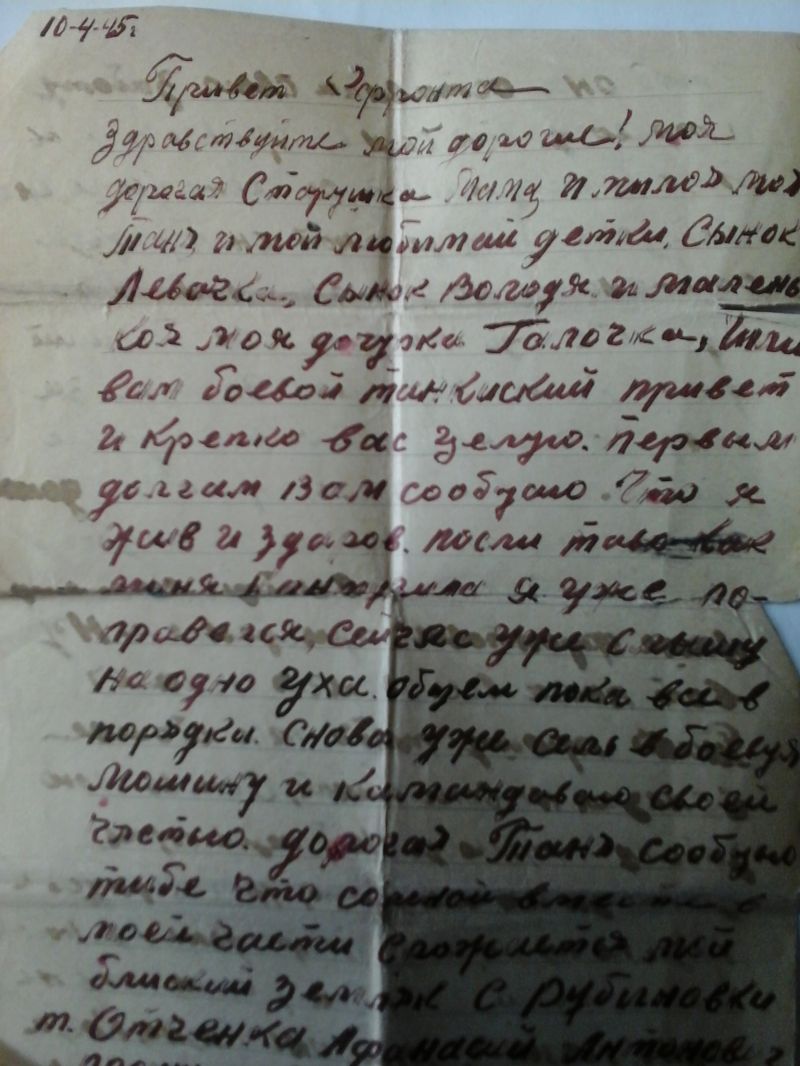 10-4-45г
Привет с фронта
Здравствуйте мой дорогие! моя
дорогая Старушка Мама и милоя моя
Таня и мой любимай детки, Сынок
Левочка, Сынок Володя и малень
коя моя дочурка Галочка, Шлю
вам боевой танкиский привет
и крепко вас целую. первым
долгам Вам сообщаю Что я
жив и здаров. посли таво как
миня я уже по-
правелся, сейчас уже слышу
на одно уха. общем пока все в
порядки. Снова уже сель в боевуя
Мошину и камандоваю своей
Частью. дорогая Таня сообщаю
тибе что сомной вместе в
моей части сражается мой
блиский земляк с Рубиновки
т. Отченка Афанасий Антонович